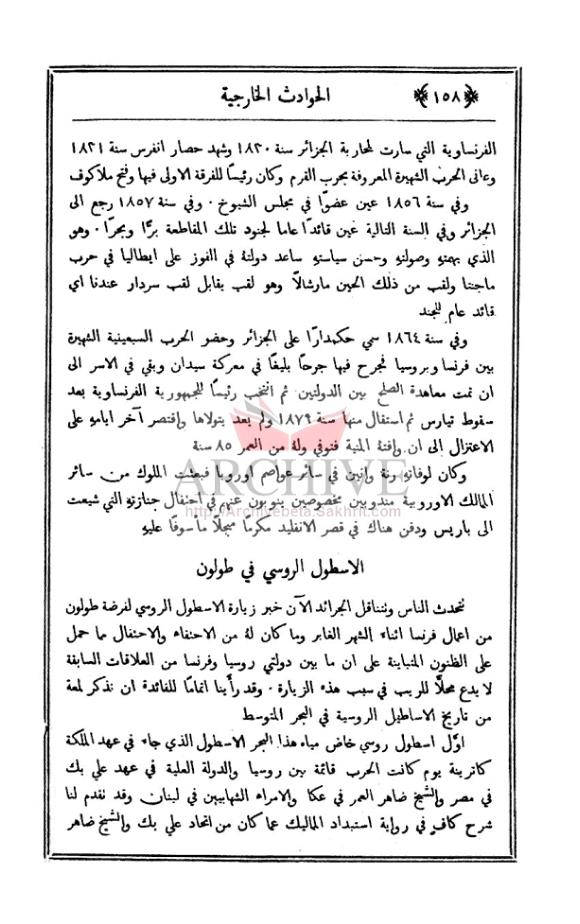 ﴿١٥٨﴾ الحوادث الخارجية
الفرنساوية التي سارت لمحاربة الجزائر سنة ١٨٣٠ وشهد حصار انفرس سنة ١٨٣١
وعانى الحرب الشهيرة المعروفة بحرب القرم وكان رئيسًا للفرقة الاولى فيها وفتح ملاكوف
وفي سنة ١٨٥٦ عين عضوًا في مجلس الشيوخ · وفي سنة ١٨٥٧ رجع الى
الجزائر وفي السنة التالية عين قائدًا عاما لجنود تلك المقاطعة برًّا وبحرًا · وهو
الذي بهمتهِ وصولتهِ وحسن سياستهِ ساعد دولتهُ في الفوز على ايطاليا في حرب
ماجنتا ولقب من ذلك الحين مارشالًا وهو لقب يقابل لقب سردار عندنا اي
قائد عام للجند
وفي سنة ١٨٦٤ سمي حكمدارًا على الجزائر وحضر الحرب السبعينية الشهيرة
بين فرنسا وبروسيا فجرح فيها جرحًا بليغًا في معركة سيدان وبقي في الاسر الى
ان تمت معاهدة الصلح بين الدولتين ثم انتخب رئيسًا للجمهورية الفرنساوية بعد
سقوط تيارس ثم استقال منها سنة ١٨٧٩ ولم يعد يتولاها واقتصر آخر ايامهِ على
الاعتزال الى ان وافتهُ المنية فتوفي ولهُ من العمر ٨٥ سنة
وكان لوفاتهِ رنة وانين في سائر عواصم اوروبا فبعثت الملوك من سائر
الممالك الاوروبية مندوبين مخصوصين ينوبون عنهم في احتفال جنازتهِ التي شيعت
الى باريس ودفن هناك في قصر الانفليد مكرمًا مبجلًا ماسوفًا عليهِ
ARCHIVE
http://Archivebeta.Sakhrit.com
الاسطول الروسي في طولون
تتحدث الناس وتتناقل الجرائد الآن خبر زيارة الاسطول الروسي لفرضة طولون
من اعمال فرنسا اثناء الشهر الغابر وما كان لهُ من الاحتفاء والاحتفال مما حمل
على الظنون المتباينة على ان ما بين دولتي روسيا وفرنسا من العلاقات السابقة
لا يدع محلًّا للريب في سبب هذه الزيارة · وقد رأَينا اتمامًا للفائدة ان نذكر لمعة
من تاريخ الاساطيل الروسية في البحر المتوسط
اوَّل اسطول روسي خاض مياه هذا البحر الاسطول الذي جاء في عهد الملكة
كاترينة يوم كانت الحرب قائمة بين روسيا والدولة العلية في عهد علي بك
في مصر والشيخ ضاهر العمر في عكا والامراء الشهابيين في لبنان وقد تقدم لنا
شرح كافٍ في رواية استبداد المماليك عما كان من اتحاد علي بك والشيخ ضاهر